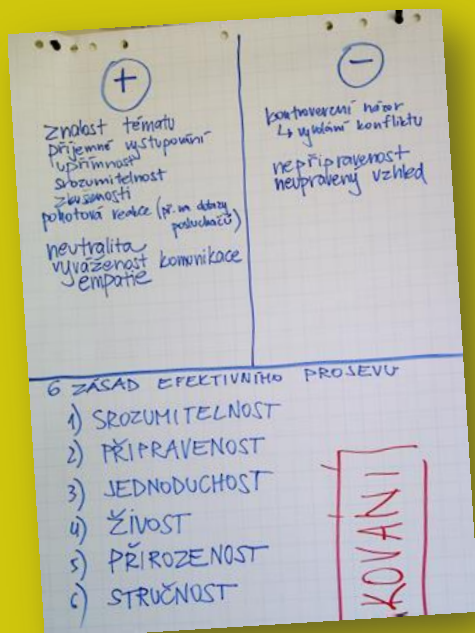 +
znalost tématu
příjemné vystupování
upřímnost
srozumitelnost
zkušenosti
pohotová reakce (př. na dotazy
posluchačů)
neutralita
vyváženost komunikace
empatie
−
kontroverzní názor
↳ vyvolání konfliktu
nepřipravenost
neupravený vzhled
6 ZÁSAD EFEKTIVNÍHO PROJEVU
1) SROZUMITELNOST
2) PŘIPRAVENOST
3) JEDNODUCHOST
4) ŽIVOST
5) PŘIROZENOST
6) STRUČNOST
KOVÁNÍ